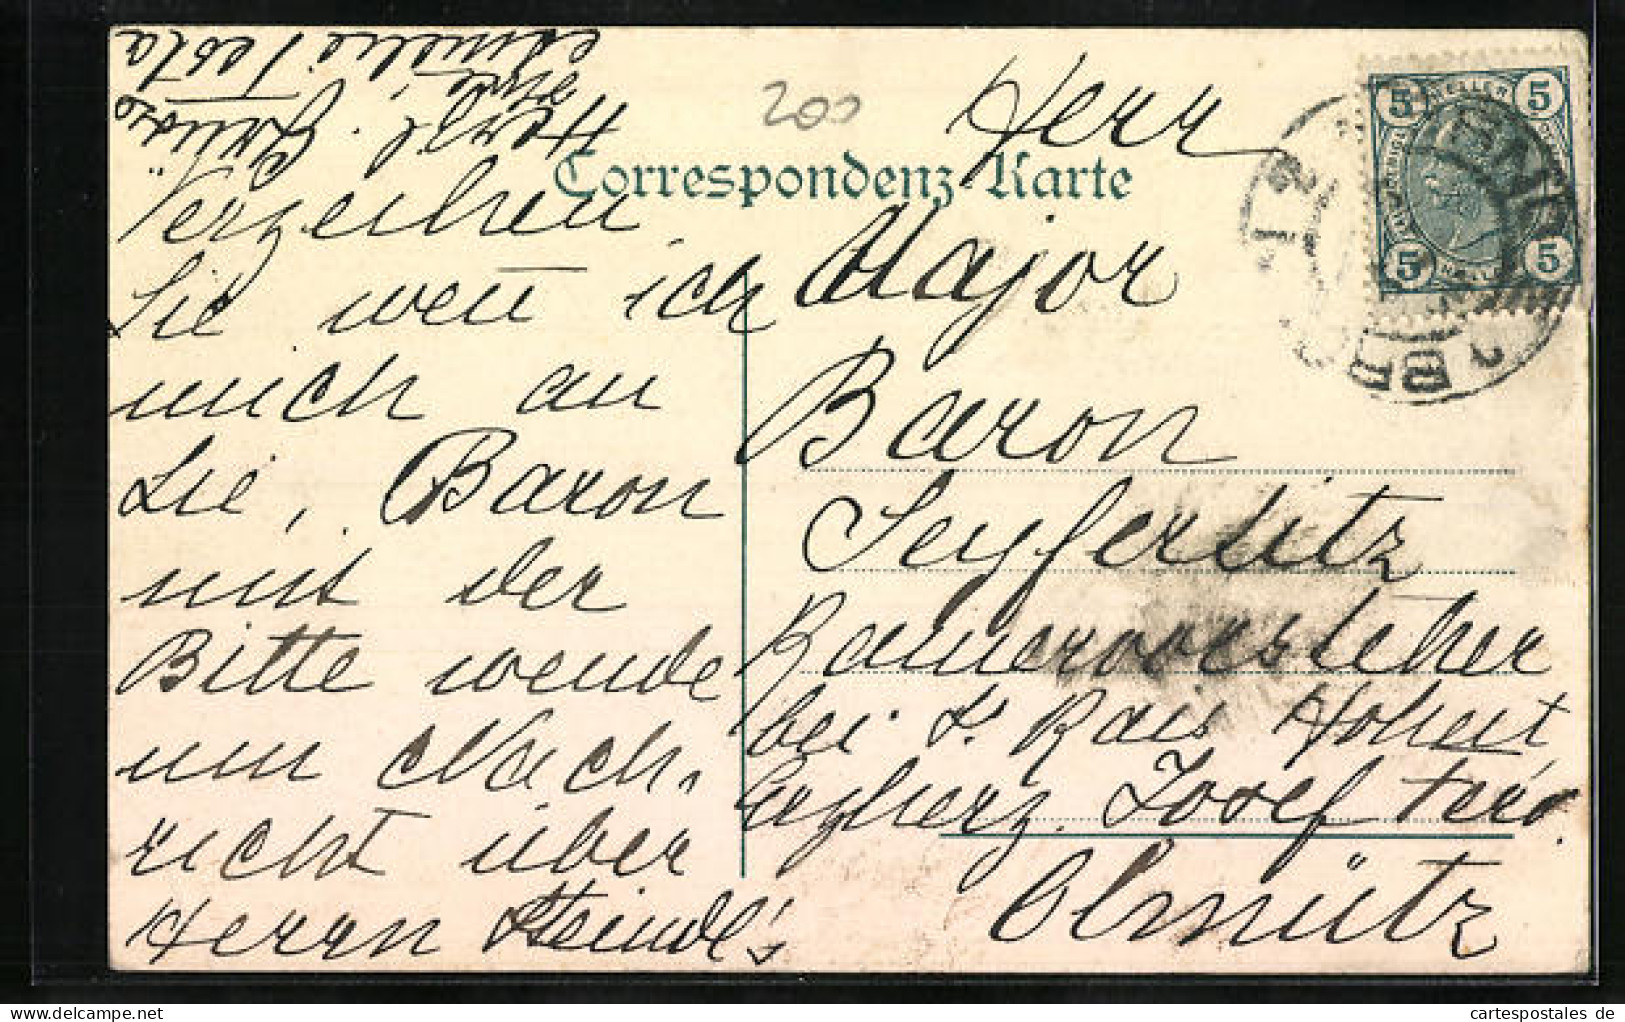 200
Correspondenz-Karte
Verzeihen
Sie wen ich
mich an
Sie, Baron
mit der
Bitte wende
um Nach-
richt über
Herrn Steindl's
Herzl. Grüße
Ihre
Testa
Herr
Major
Baron
Seyfertitz
Kamervorsteher
bei S. Kais Hoheit
Erzherz. Josef Ferd.
Olmütz
5 HELLER 5
5 HELLER 5
cartespostales de